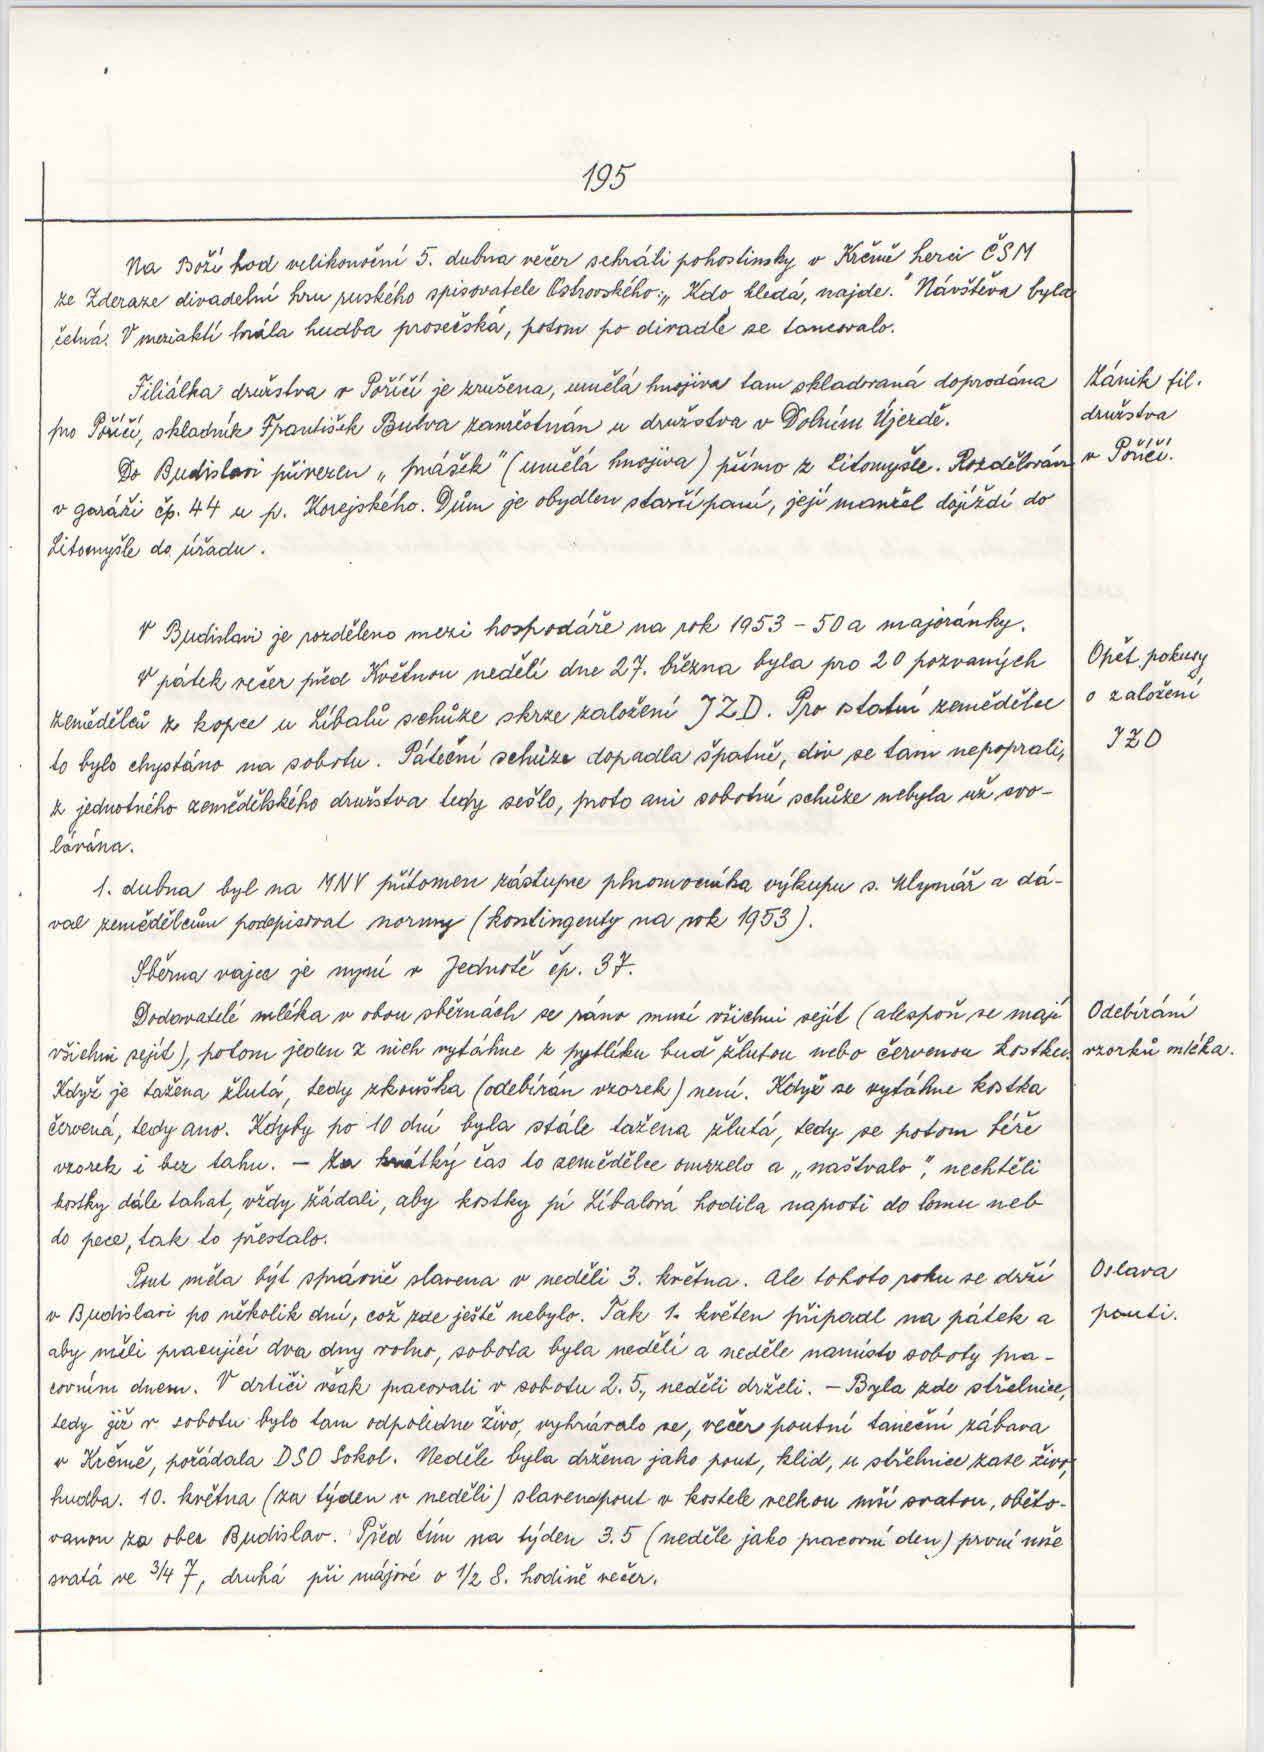 195
Na Boží hod velikonoční 5. dubna večer sehráli pohostinsky v Krčmě herci ČSM
ze Zderaze divadelní hru ruského spisovatele Ostrovského: „Kdo hledá, najde." Návštěva byla
četná. V meziaktí hrála hudba prosečská, potom po divadle se tancovalo.
Filiálka družstva v Poříčí je zrušena, umělá hnojiva tam skladovaná doprodána
Zánik fil.
pro Poříčí, skladník František Bulva zaměstnán u družstva v Dolním Újezdě.
družstva
Do Budislavi přivezen „prášek" (umělá hnojiva) přímo z Litomyšle. Rozdělován
v Poříčí.
v garáži čp. 44 u p. Korejského. Dům je obydlen starší paní, její manžel dojíždí do
Litomyšle do úřadu.
V Budislavi je rozděleno mezi hospodáře na rok 1953 – 50 a majoránky.
V pátek večer před Květnou nedělí dne 27. března byla pro 20 pozvaných
Opět pokusy
zemědělců z kopce u Líbalů schůze skrze založení JZD. Pro ostatní zemědělce
o založení
to bylo chystáno na sobotu. Páteční schůze dopadla špatně, div se tam nepoprali,
JZD
z jednotného zemědělského družstva tedy sešlo, proto ani sobotní schůze nebyla už svo-
lávána.
1. dubna byl na MNV přítomen zástupce plnomocníka výkupu s. Mlynář a dá-
val zemědělcům podepisovat normy (kontingenty na rok 1953).
Sběrna vajec je nyní v Jednotě čp. 37.
Dodavatelé mléka v obou sběrnách se ráno musí všichni sejít (alespoň se mají
Odebírání
všichni sejít), potom jeden z nich vytáhne z pytlíku buď žlutou nebo červenou kostku.
vzorků mléka.
Když je tažena žlutá, tedy zkouška (odebírán vzorek) není. Když se vytáhne kostka
červená, tedy ano. Kdyby po 10 dní byla stále tažena žlutá, tedy se potom béře
vzorek i bez tahu. – Za krátký čas to zemědělce omrzelo a „naštvalo", nechtěli
kostky dále tahat, vždy žádali, aby kostky pí Líbalová hodila naproti do lomu neb
do pece, tak to přestalo.
Pouť měla být správně slavena v neděli 3. května. Ale tohoto roku se drží
Oslava
v Budislavi po několik dní, což zde ještě nebylo. Tak 1. květen připadl na pátek a
pouti.
aby měli pracující dva dny volno, sobota byla nedělí a neděle namísto soboty pra-
covním dnem. V drtiči však pracovali v sobotu 2.5., neděli drželi. – Byla zde střelnice,
tedy již v sobotu bylo tam odpoledne živo, vyhrávalo se, večer poutní taneční zábava
v Krčmě, pořádala DSO Sokol. Neděle byla držena jako pouť, klid, u střelnice zase živo,
hudba. 10. května (za týden v neděli) slavena pouť v kostele velkou mší svatou, oběto-
vanou za obec Budislav. Před tím na týden 3.5 (neděle jako pracovní den) první mše
svatá ve 3/4 7, druhá při májové o 1/2 8. hodině večer.